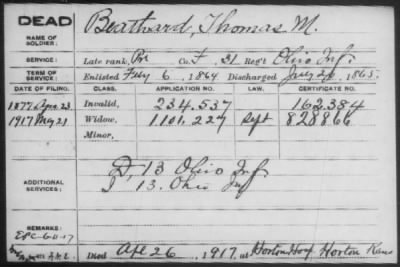 DEAD
NAME OF SOLDIER:
Beathard, Thomas M.
SERVICE:
Late rank, Pvt Co. F, 31 Reg't Ohio Inf.
TERM OF SERVICE:
Enlisted Feby 6, 1864 Discharged July 20, 1865.
DATE OF FILING. CLASS. APPLICATION NO. LAW. CERTIFICATE NO.
1877 Apr. 23. Invalid, 234.537 162.384
1917 May 21 Widow, 1101.227 Sept 828866
Minor,
ADDITIONAL SERVICES:
D, 13 Ohio Inf
13. Ohio Inf
REMARKS:
Died Apl 26, 1917, at Horton Hosp. Horton Kans